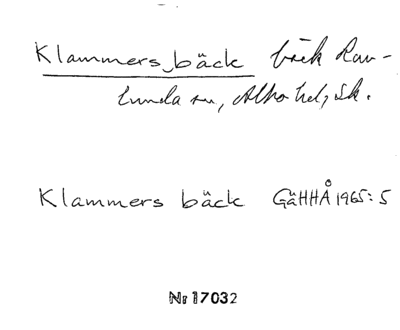 Klammers bäck bäck Rav-
lunda sn, Albo hd, Sk.
Klammers bäck GäHHÅ 1965:5
Nr 17032